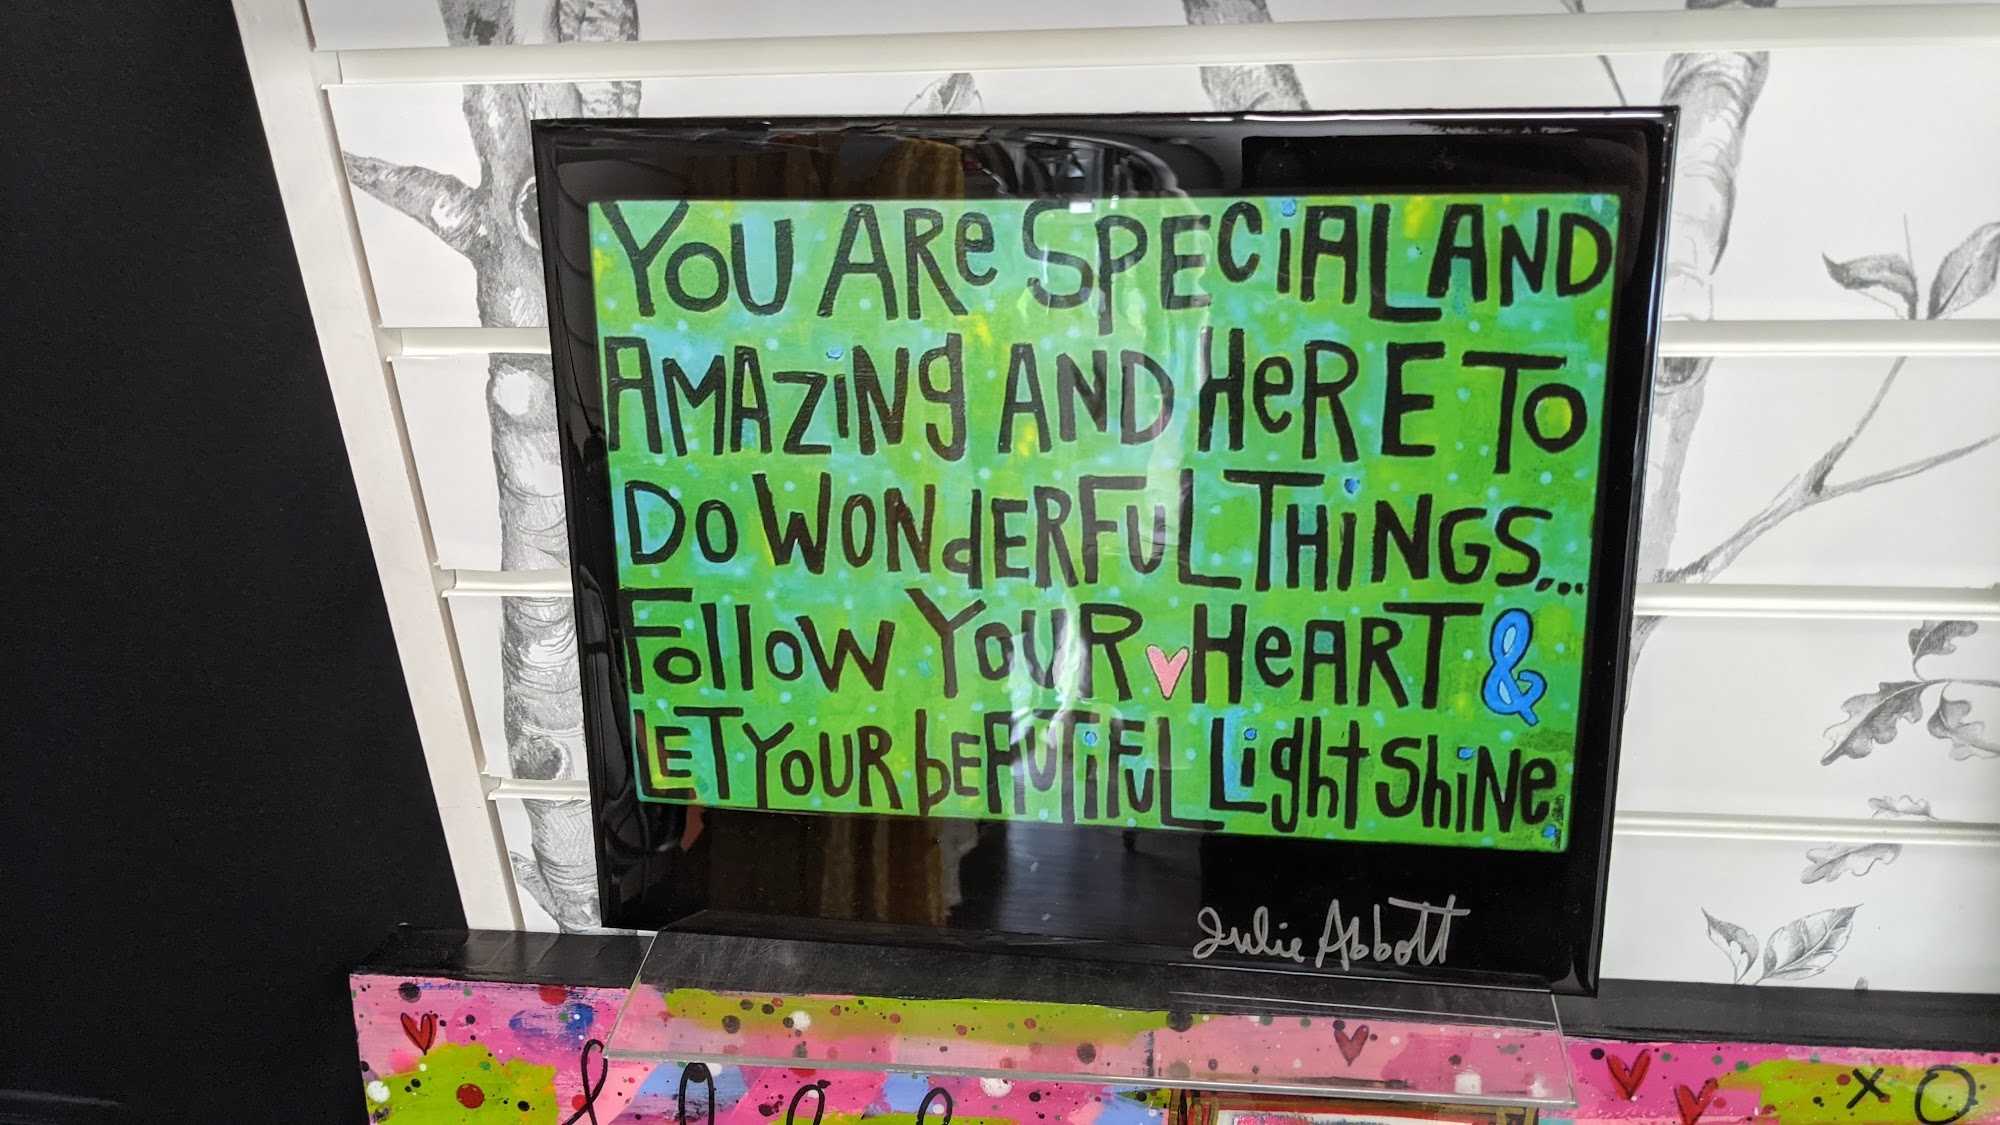 YOU ARe SPECiAL AND
AMAZiNg AND HeRE TO
DO WONdERFUL THiNGS...
Follow YOUR HeART &
LET YOUR bEAUTiFUL Light Shine.
Julie Abbott
XO